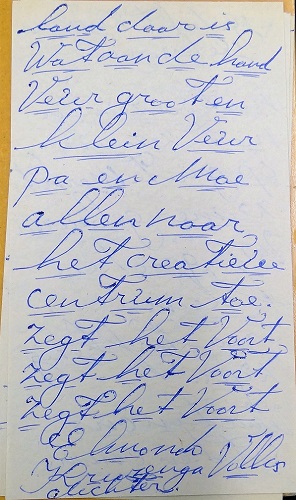 land daar is
Wat aan de hand
Veur groot en
klein Veur
pa en Moe
allen naar
het creatieve
centrum toe.
zegt het Voort
zegt het Voort
zegt het Voort
Elmondo
Volks
dichter.